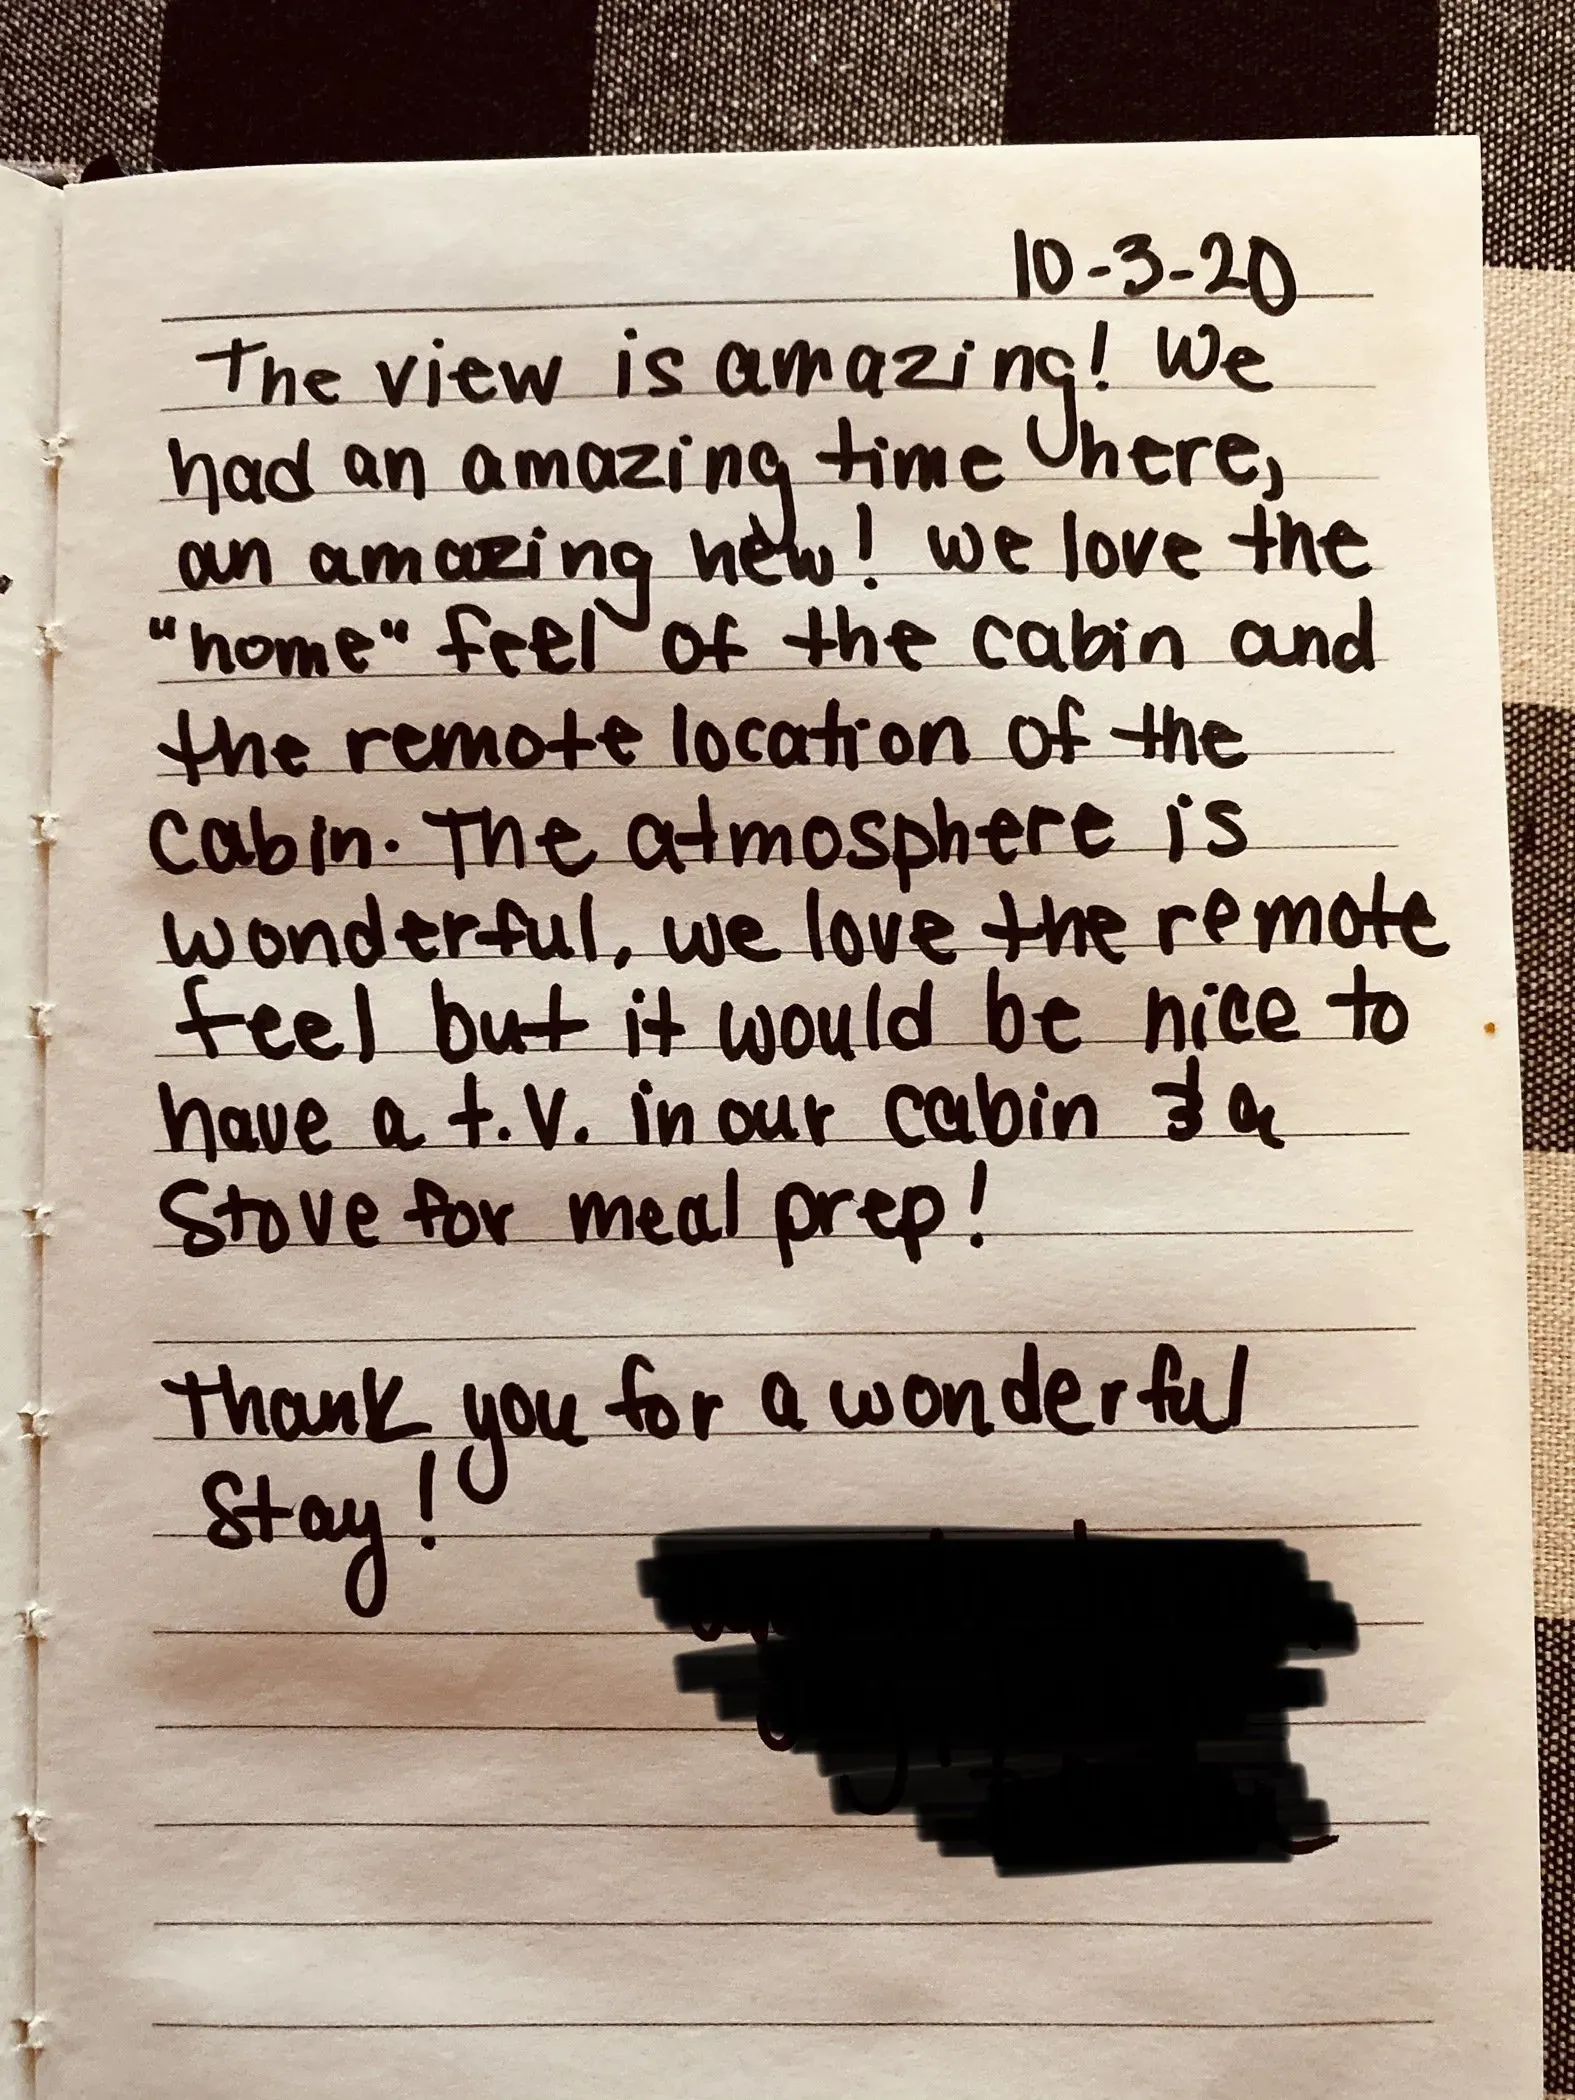 10-3-20
The view is amazing! We
had an amazing time here,
an amazing new! we love the
"home" feel of the cabin and
the remote location of the
cabin. The atmosphere is
wonderful, we love the remote
feel but it would be nice to
have a t.v. in our cabin & a
stove for meal prep!
Thank you for a wonderful
stay!